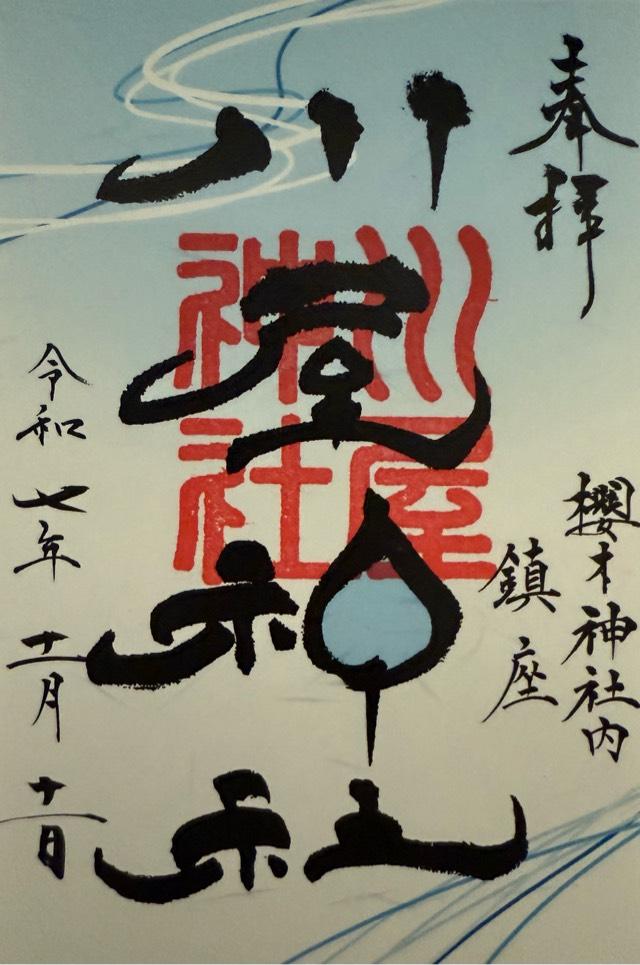 奉拝
櫻木神社内
鎮座
川屋神社
川屋神社
令和七年十一月十一日